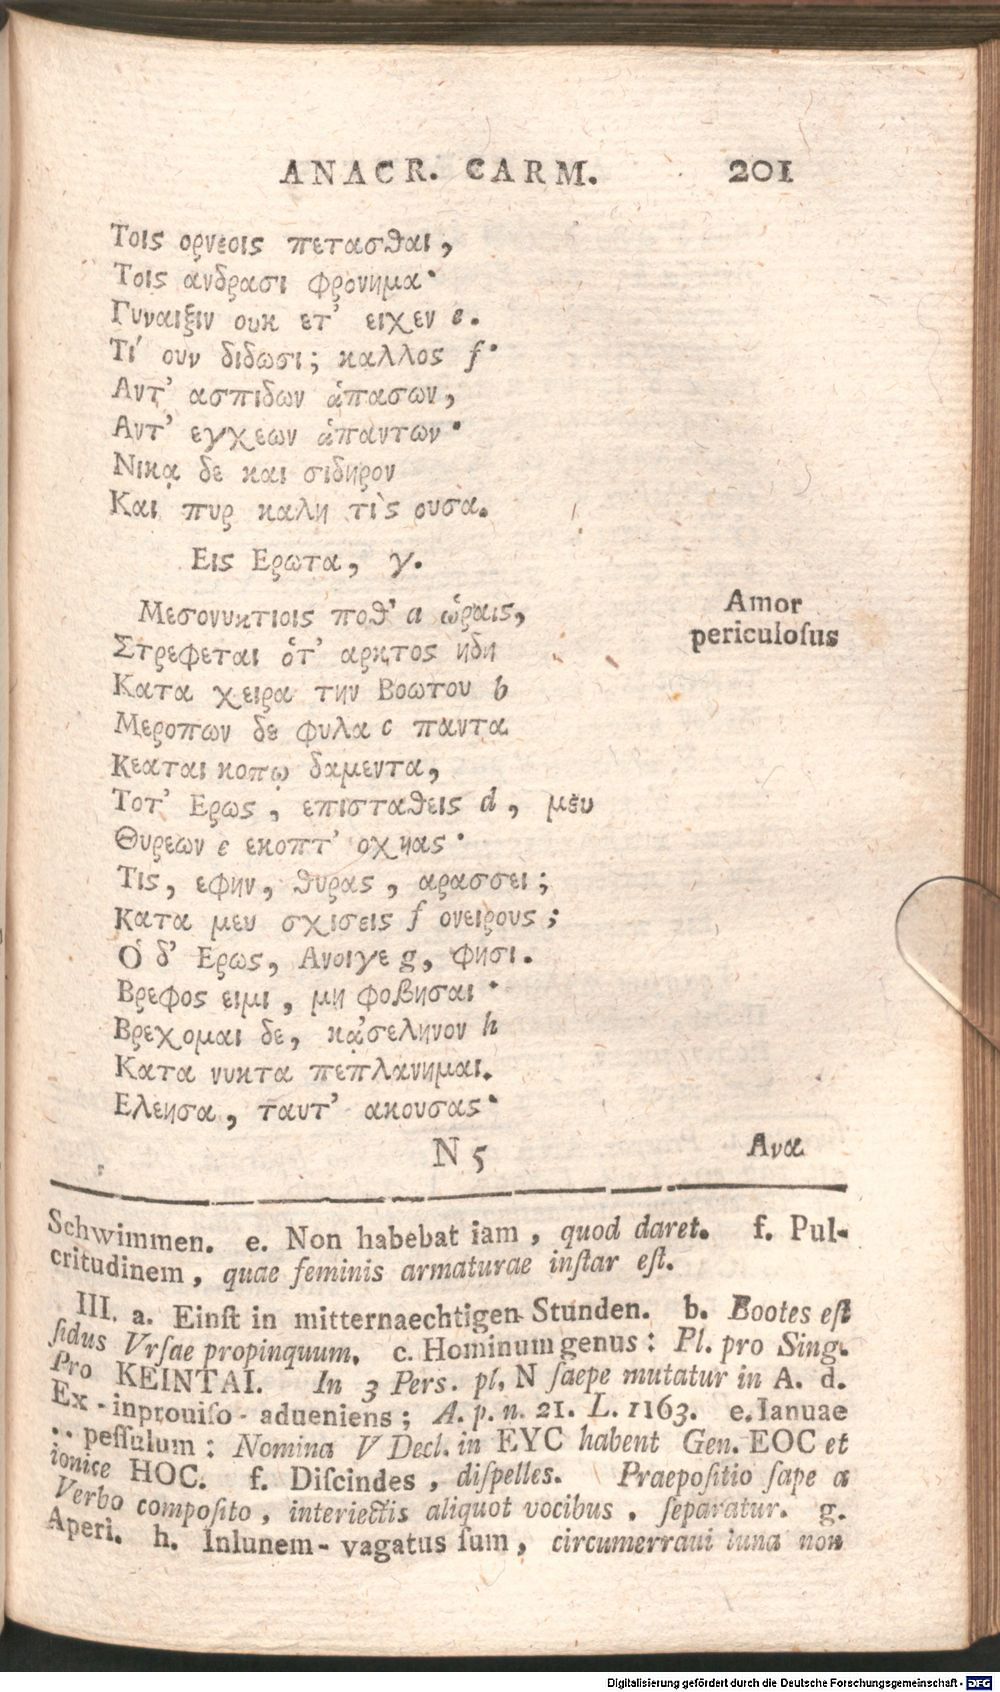 ANACR. CARM. 201
Τοις ορνεοις πετασθαι,
Τοις ανδρασι φρονημα·
Γυναιξιν ουκ ετ' ειχεν e.
Τί ουν διδωσι; καλλος f·
Αντ' ασπιδων ἁπασων,
Αντ' εγχεων ἁπαντων·
Νικᾳ δε και σιδηρον
Και πυρ καλη τὶς ουσα.
Εις Ερωτα, γ.
Μεσονυκτιοις ποθ' a ὡραις,
Στρεφεται ὁτ' αρκτος ηδη
Κατα χειρα την Βοωτου b
Μεροπων δε φυλα c παντα
Κεαται κοπῳ δαμεντα,
Τοτ' Ερως, επισταθεις d, μευ
Θυρεων e εκοπτ' οχηας·
Τις, εφην, θυρας, αρασσει;
Κατα μευ σχισεις f ονειρους;
Ὁ δ' Ερως, Ανοιγε g, φησι.
Βρεφος ειμι, μη φοβησαι·
Βρεχομαι δε, κᾀσεληνον h
Κατα νυκτα πεπλανημαι.
Ελεησα, ταυτ' ακουσας·
Amor
periculoſus
N 5 Ανα
Schwimmen. e. Non habebat iam, quod daret. f. Pul-
critudinem, quae feminis armaturae inſtar eſt.
III. a. Einſt in mitternaechtigen Stunden. b. Bootes eſt
ſidus Vrſae propinquum. c. Hominum genus: Pl. pro Sing.
Pro KEINTAI. In 3 Pers. pl. N ſaepe mutatur in A. d.
Ex-inprouiſo-adueniens; A. p. n. 21. L. 1163. e. Ianuae
·· peſſulum: Nomina V Decl. in ΕΥC habent Gen. ΕΟC et
ionice ΗΟC. f. Diſcindes, diſpelles. Praepoſitio ſape a
Verbo compoſito, interiectis aliquot vocibus, ſeparatur. g.
Aperi. h. Inlunem-vagatus ſum, circumerraui luna non
Digitalisierung gefördert durch die Deutsche Forschungsgemeinschaft - DFG